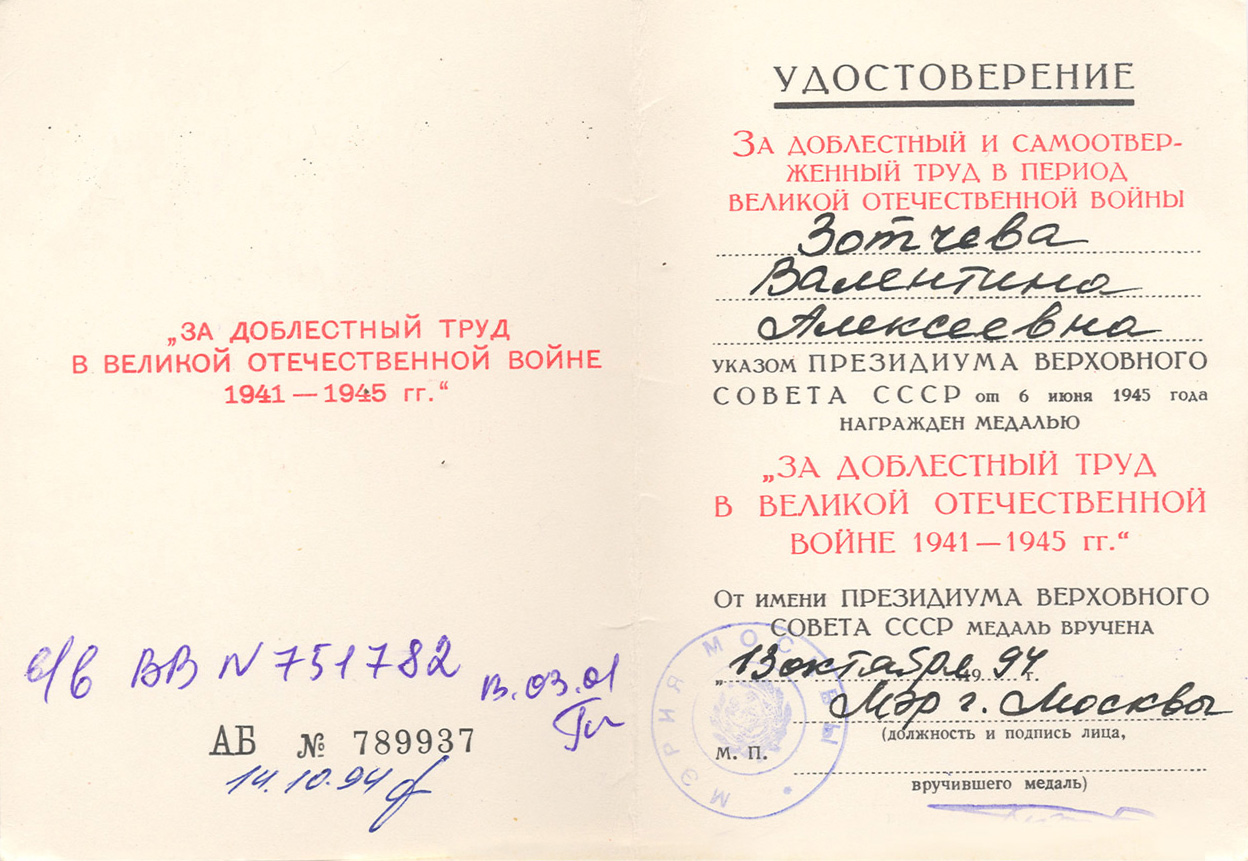 „ЗА ДОБЛЕСТНЫЙ ТРУД
В ВЕЛИКОЙ ОТЕЧЕСТВЕННОЙ ВОЙНЕ
1941—1945 гг.“
в/в ВВ N 751782
13.03.01
АБ № 789937
14.10.94
УДОСТОВЕРЕНИЕ
ЗА ДОБЛЕСТНЫЙ И САМООТВЕР-
ЖЕННЫЙ ТРУД В ПЕРИОД
ВЕЛИКОЙ ОТЕЧЕСТВЕННОЙ ВОЙНЫ
Зотчева
Валентина
Алексеевна
УКАЗОМ ПРЕЗИДИУМА ВЕРХОВНОГО
СОВЕТА СССР от 6 июня 1945 года
НАГРАЖДЕН МЕДАЛЬЮ
„ЗА ДОБЛЕСТНЫЙ ТРУД
В ВЕЛИКОЙ ОТЕЧЕСТВЕННОЙ
ВОЙНЕ 1941—1945 гг.“
ОТ ИМЕНИ ПРЕЗИДИУМА ВЕРХОВНОГО
СОВЕТА СССР МЕДАЛЬ ВРУЧЕНА
„13 октября 1994 г.
Мэр г. Москвы
(должность и подпись лица,
М. П.
вручившего медаль)
МЭРИЯ МОСКВЫ